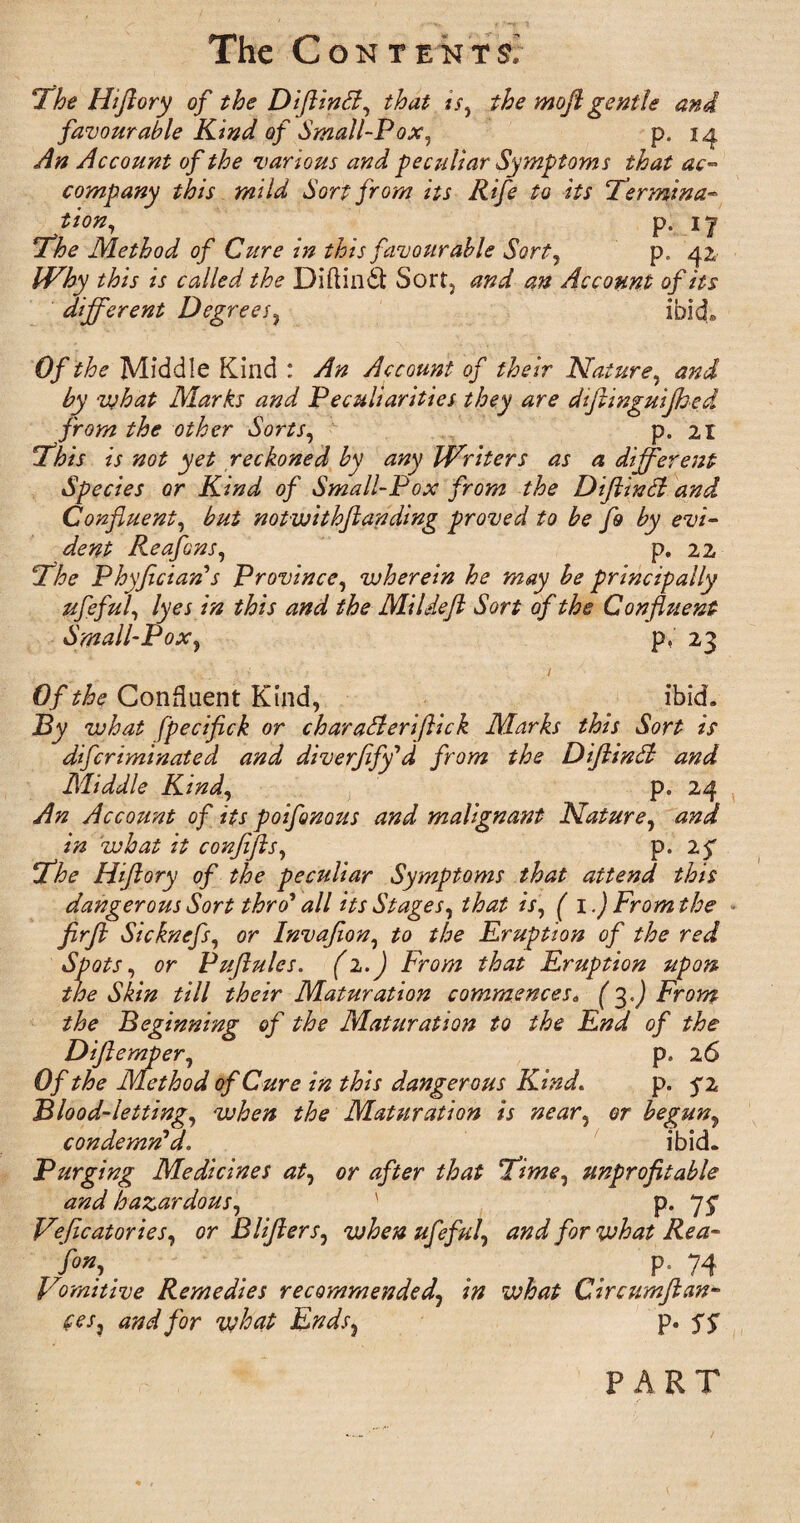 The CONTENTS.
The Hiſtory of the Diſtinct, that is, the moſt gentle and
favourable Kind of Small-Pox, p. 14
An Account of the various and peculiar Symptoms that ac-
company this mild Sort from its Riſe to its Termina-
tion, p. 17
The Method of Cure in this favourable Sort, p. 42
Why this is called the Diſtinct Sort, and an Account of its
different Degrees, ibid.
Of the Middle Kind : An Account of their Nature, and
by what Marks and Peculiarities they are diſtinguiſhed
from the other Sorts, p. 21
This is not yet reckoned by any Writers as a different
Species or Kind of Small-Pox from the Diſtinct and
Confluent, but notwithſtanding proved to be ſo by evi-
dent Reaſons, p. 22
The Phyſician's Province, wherein he may be principally
uſeful, lyes in this and the Mildeſt Sort of the Confluent
Small-Pox, p. 23
Of the Confluent Kind, ibid.
By what ſpecifick or characteriſtick Marks this Sort is
diſcriminated and diverſify'd from the Diſtinct and
Middle Kind, p. 24
An Account of its poiſonous and malignant Nature, and
in what it conſiſts, p. 25
The Hiſtory of the peculiar Symptoms that attend this
dangerous Sort thro' all its Stages, that is, (1.) From the
firſt Sickneſs, or Invaſion, to the Eruption of the red
Spots, or Puſtules. (2.) From that Eruption upon
the Skin till their Maturation commences. (3.) From
the Beginning of the Maturation to the End of the
Diſtemper, p. 26
Of the Method of Cure in this dangerous Kind. p. 52
Blood-letting, when the Maturation is near, or begun,
condemn'd. ibid.
Purging Medicines at, or after that Time, unprofitable
and hazardous, p. 75
Veſicatories, or Bliſters, when uſeful, and for what Rea-
ſon, p. 74
Vomitive Remedies recommended, in what Circumſtan-
ces, and for what Ends, p. 55
PART